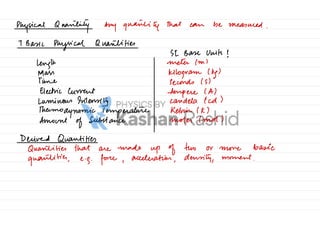 Physical Quantity Any quantity that can be measured.
7 Basic Physical Quantities
SI Base Units!
Length meter (m)
Mass kilogram (kg)
Time seconds (s)
Electric Current Ampere (A)
Luminous Intensity candela (cd)
Thermodynamic Temperature Kelvin (K)
Amount of Substance moles (mol)
PHYSICS BY
Kashan Rashid
Derived Quantities
Quantities that are made up of two or more basic
quantities, e.g. force, acceleration, density, moment.